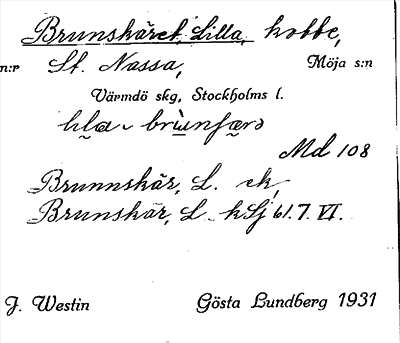 Brunskäret, Lilla, kobbe,
n:r St. Nassa, Möja s:n
Värmdö skg, Stockholms l.
Md 108
Brunnskär, L. ek,
Brunskär, L kSj 61.7.VI.
J. Westin Gösta Lundberg 1931